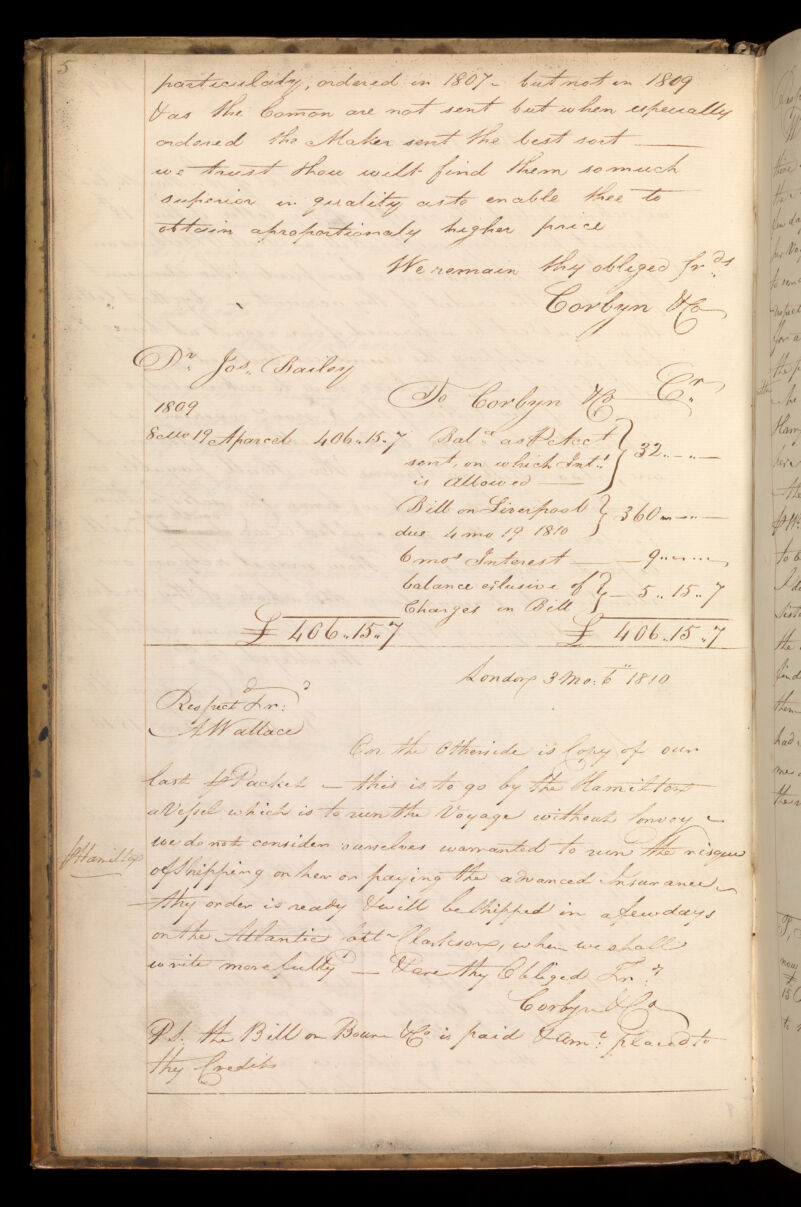 5
particularly, ordered in 1807 - but not in 1809
& as the Comon are not sent but when especially
ordered the Maker sent the best sort —
we trust thou wilt find them so much
superior in quality as to enable thee to
obtain a proportionaly higher price
We remain thy obliged frds
Corbyn & Co
Dr Jos. Bailey
To Corbyn & Co Cr
1809
8 Mo 19 A parcel 406..15..7
Bale as P Acct
sent, on which Intt
is allowed — 32..-..-
Bill on Liverpool
due 4 mo 19 1810 360..-..-
6 mos Interest — 9..-..-
balance exlusive of
Charges in Bill 5..15..7
£ 406..15..7 £ 406..15..7
London 3 Mo: 6th 1810
Respectd Frd:
A Wallace
On the Otherside is Copy of our
last P Packet — this is to go by the Hamilton
a Vessel which is to run the Voyage without Convoy -
P Hamilton
we do not consider ourselves warranted to run the risque
of Shipping on her or paying the advanced Insurance -
thy order is ready & will be Shipped in a few days
on the Atlantic Cattn Clarkson, when we shall
write more fully — & are thy Obliged Frds
Corbyn & Co
P.S. the Bill on Bourn & Co is paid & amt placed to
thy Credit